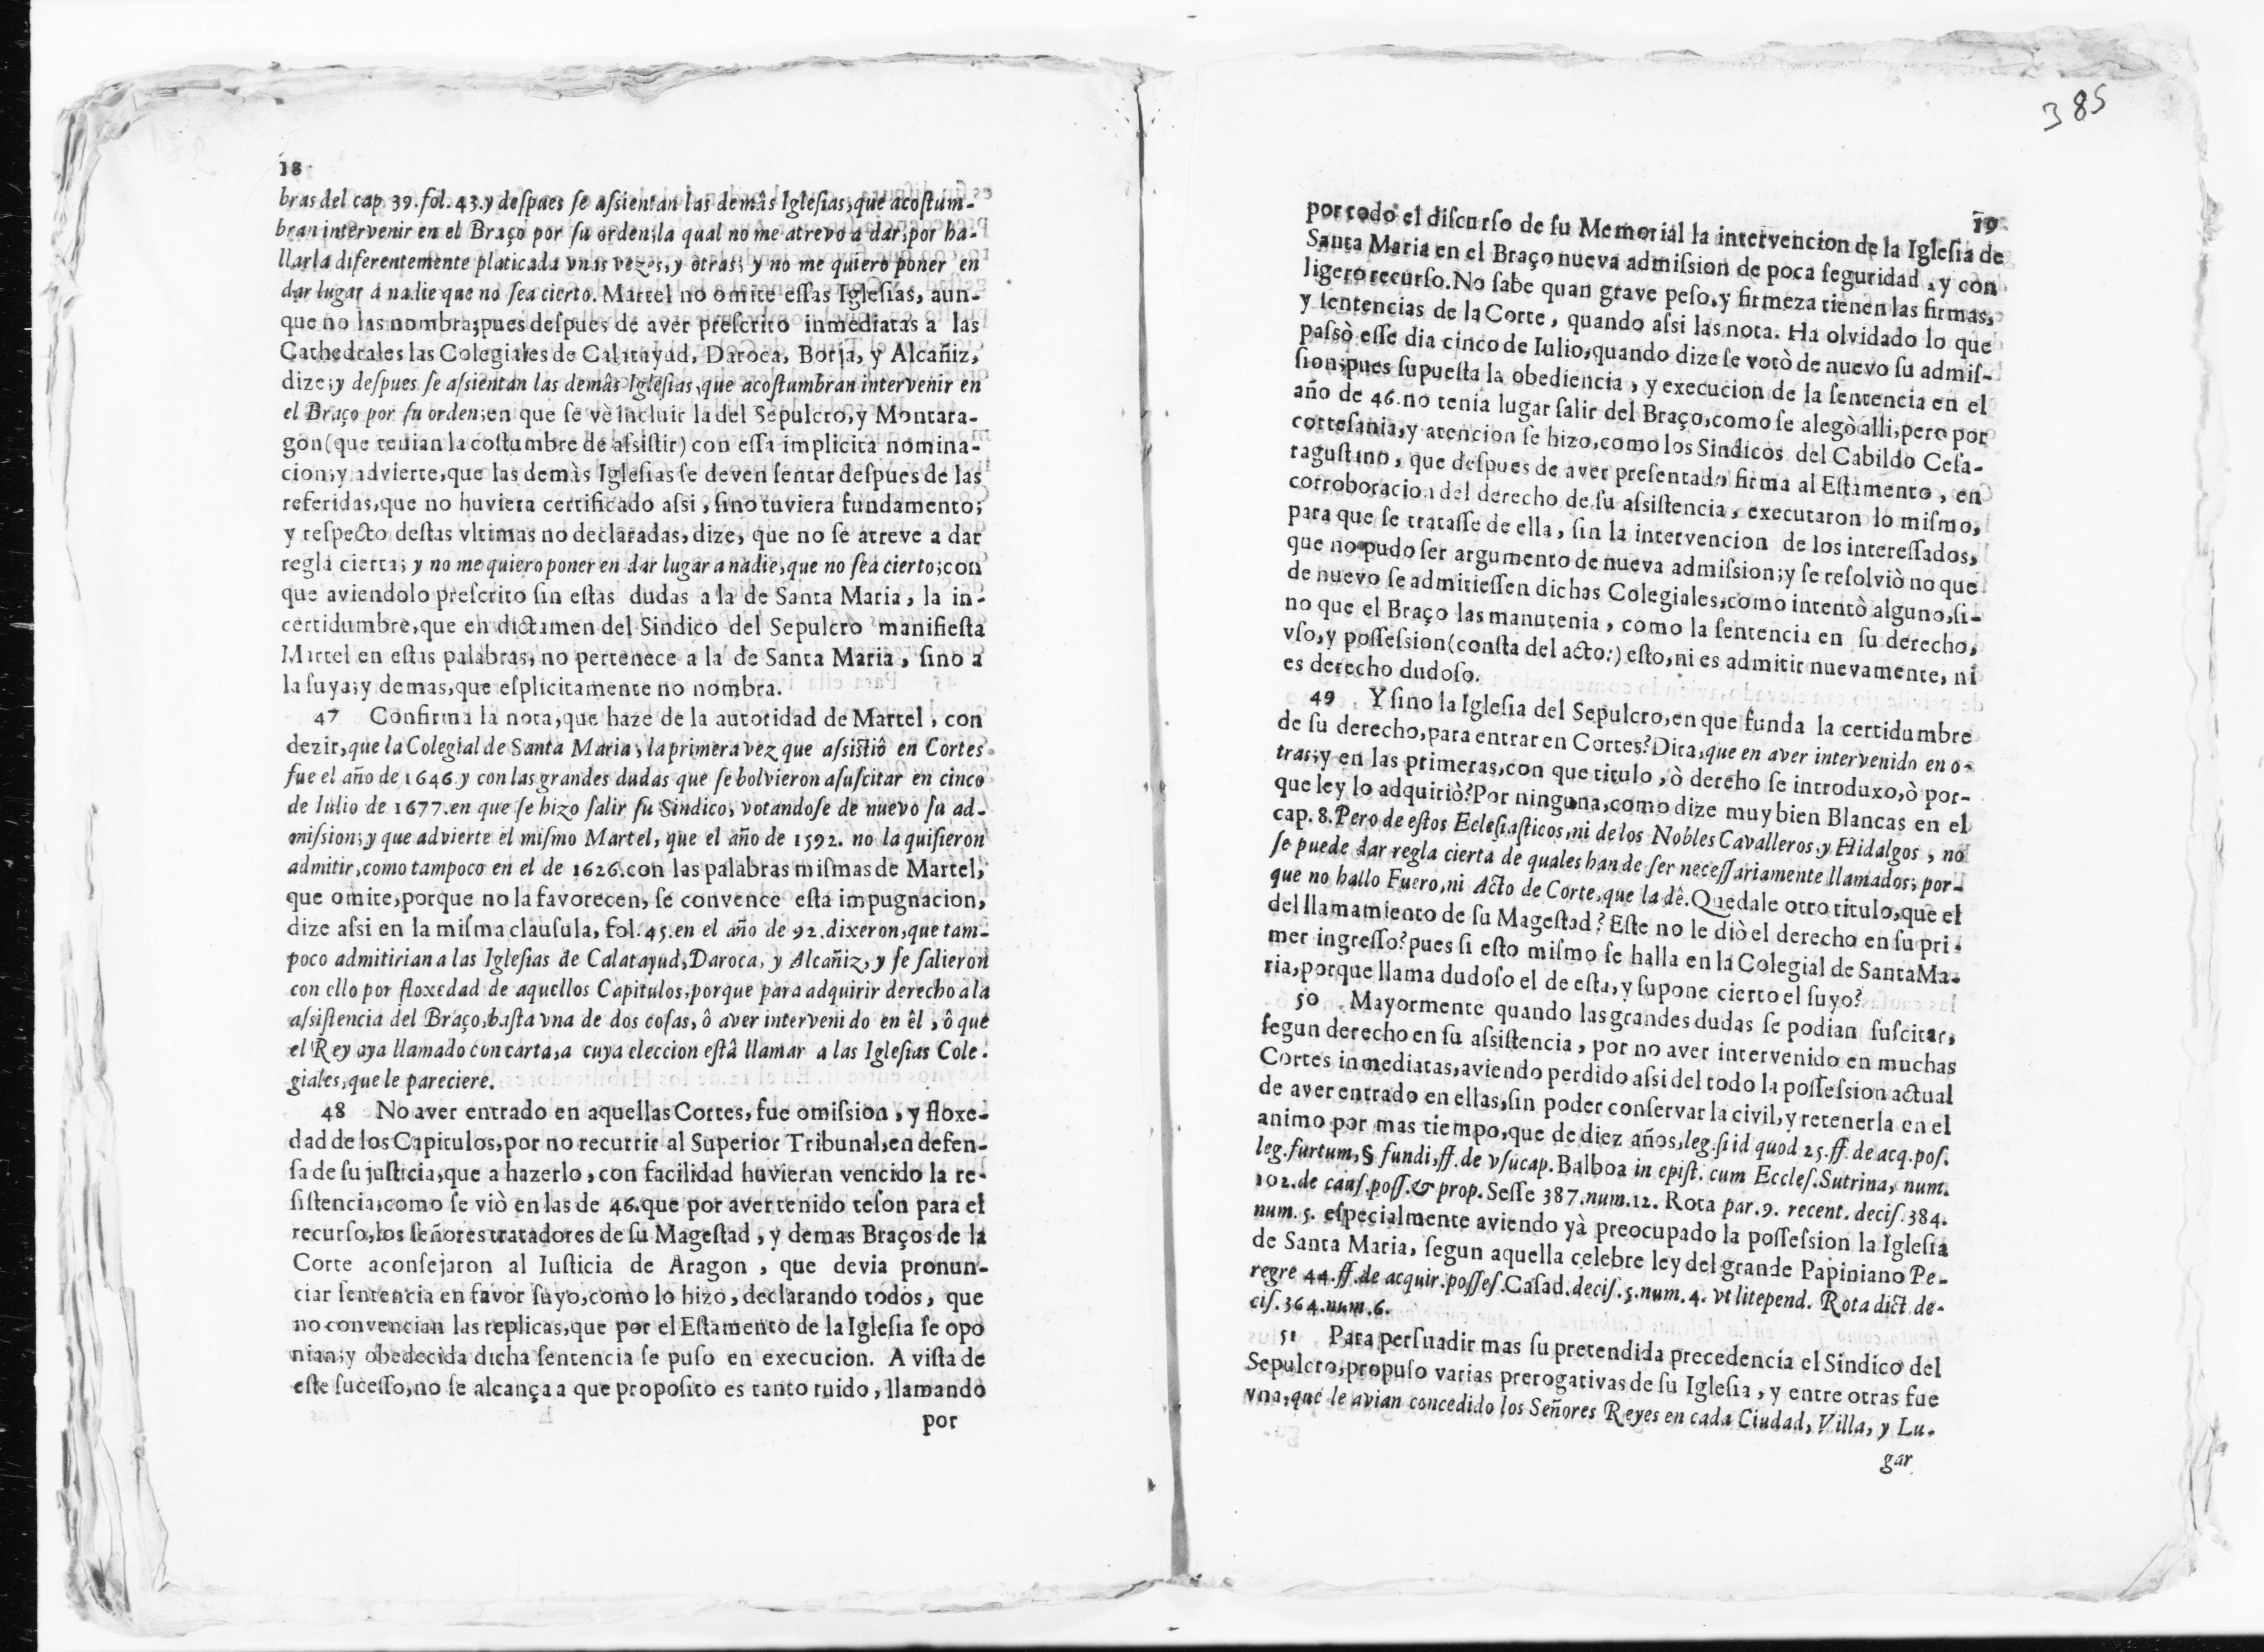 18
bras del cap. 39. fol. 43. y deſpues ſe aſsientan las demâs Igleſias, que acoſtum-
bran intervenir en el Braço por ſu orden; la qual no me atrevo a dar, por ha-
llarla diferentemente platicada vnas vezes, y otras; y no me quiero poner en
dar lugar à nadie que no ſea cierto. Martel no omite eſſas Igleſias, aun-
que no las nombra; pues deſpues de aver preſcrito inmediatas a las
Cathedrales las Colegiales de Calatayud, Daroca, Borja, y Alcañiz,
dize; y deſpues ſe aſsientan las demâs Igleſias, que acoſtumbran intervenir en
el Braço por ſu orden; en que ſe vè incluir la del Sepulcro, y Montara-
gon (que tenian la coſtumbre de aſsiſtir) con eſſa implicita nomina-
cion; y advierte, que las demàs Igleſias ſe deven ſentar deſpues de las
referidas, que no huviera certificado aſsi, ſino tuviera fundamento;
y reſpecto deſtas vltimas no declaradas, dize, que no ſe atreve a dar
regla cierta; y no me quiero poner en dar lugar a nadie, que no ſea cierto; con
que aviendolo preſcrito ſin eſtas dudas a la de Santa Maria, la in-
certidumbre, que en dictamen del Sindico del Sepulcro manifieſta
Martel en eſtas palabras, no pertenece a la de Santa Maria, ſino a
la ſuya; y demas, que eſplicitamente no nombra.
47 Confirma la nota, que haze de la autoridad de Martel, con
dezir, que la Colegial de Santa Maria, la primera vez que aſsiſtiô en Cortes
fue el año de 1646. y con las grandes dudas que ſe bolvieron a ſuſcitar en cinco
de Iulio de 1677. en que ſe hizo ſalir ſu Sindico, votandoſe de nuevo ſu ad-
miſsion; y que advierte el miſmo Martel, que el año de 1592. no la quiſieron
admitir, como tampoco en el de 1626. con las palabras miſmas de Martel,
que omite, porque no la favorecen, ſe convence eſta impugnacion,
dize aſsi en la miſma clauſula, fol. 45. en el año de 92. dixeron, que tam-
poco admitirian a las Igleſias de Calatayud, Daroca, y Alcañiz, y ſe ſalieron
con ello por floxedad de aquellos Capitulos, porque para adquirir derecho a la
aſsiſtencia del Braço, baſta vna de dos coſas, ô aver intervenido en êl, ô que
el Rey aya llamado con carta, a cuya eleccion eſtâ llamar a las Igleſias Cole-
giales, que le pareciere.
48 No aver entrado en aquellas Cortes, fue omiſsion, y floxe-
dad de los Capitulos, por no recurrir al Superior Tribunal, en defen-
ſa de ſu juſticia, que a hazerlo, con facilidad huvieran vencido la re-
ſiſtencia, como ſe viò en las de 46. que por aver tenido teſon para el
recurſo, los ſeñores tratadores de ſu Mageſtad, y demas Braços de la
Corte aconſejaron al Iuſticia de Aragon, que devia pronun-
ciar ſentencia en favor ſuyo, como lo hizo, declarando todos, que
no convencian las replicas, que por el Eſtamento de la Igleſia ſe opo
nian; y obedecida dicha ſentencia ſe puſo en execucion. A viſta de
eſte ſuceſſo, no ſe alcança a que propoſito es tanto ruido, llamando
por
385
19
por todo el diſcurſo de ſu Memorial la intervencion de la Igleſia de
Santa Maria en el Braço nueva admiſsion de poca ſeguridad, y con
ligero recurſo. No ſabe quan grave peſo, y firmeza tienen las firmas,
y ſentencias de la Corte, quando aſsi las nota. Ha olvidado lo que
paſsò eſſe dia cinco de Iulio, quando dize ſe votò de nuevo ſu admiſ-
ſion; pues ſupueſta la obediencia, y execucion de la ſentencia en el
año de 46. no tenia lugar ſalir del Braço, como ſe alegò alli, pero por
corteſania, y atencion ſe hizo, como los Sindicos del Cabildo Ceſa-
raguſtano, que deſpues de aver preſentado firma al Eſtamento, en
corroboracion del derecho de ſu aſsiſtencia, executaron lo miſmo,
para que ſe trataſſe de ella, ſin la intervencion de los intereſſados,
que no pudo ſer argumento de nueva admiſsion; y ſe reſolviò no que
de nuevo ſe admitieſſen dichas Colegiales, como intentò alguno, ſi-
no que el Braço las manutenia, como la ſentencia en ſu derecho,
vſo, y poſſeſsion (conſta del acto:) eſto, ni es admitir nuevamente, ni
es derecho dudoſo.
49 Y ſino la Igleſia del Sepulcro, en que funda la certidumbre
de ſu derecho, para entrar en Cortes? Dira, que en aver intervenido en o-
tras; y en las primeras, con que titulo, ò derecho ſe introduxo, ò por-
que ley lo adquiriò? Por ninguna, como dize muy bien Blancas en el
cap. 8. Pero de eſtos Ecleſiaſticos, ni de los Nobles Cavalleros, y Hidalgos, no
ſe puede dar regla cierta de quales han de ſer neceſſariamente llamados; por-
que no hallo Fuero, ni Acto de Corte, que la dê. Quedale otro titulo, que el
del llamamiento de ſu Mageſtad? Eſte no le diò el derecho en ſu pri-
mer ingreſſo? pues ſi eſto miſmo ſe halla en la Colegial de Santa Ma-
ria, porque llama dudoſo el de eſta, y ſupone cierto el ſuyo?
50 Mayormente quando las grandes dudas ſe podian ſuſcitar,
ſegun derecho en ſu aſsiſtencia, por no aver intervenido en muchas
Cortes inmediatas, aviendo perdido aſsi del todo la poſſeſsion actual
de aver entrado en ellas, ſin poder conſervar la civil, y retenerla en el
animo por mas tiempo, que de diez años, leg. ſi id quod 25. ff. de acq. poſ.
leg. furtum, § fundi, ff. de vſucap. Balboa in epiſt. cum Eccleſ. Sutrina, num.
102. de cauſ. poſſ. & prop. Seſſe 387. num. 12. Rota par. 9. recent. deciſ. 384.
num. 5. eſpecialmente aviendo yà preocupado la poſſeſsion la Igleſia
de Santa Maria, ſegun aquella celebre ley del grande Papiniano Pe-
regre 44. ff. de acquir. poſſeſ. Caſad. deciſ. 5. num. 4. vt lite pend. Rota dict. de-
ciſ. 364. num. 6.
51 Para perſuadir mas ſu pretendida precedencia el Sindico del
Sepulcro, propuſo varias prerogativas de ſu Igleſia, y entre otras fue
vna, que le avian concedido los Señores Reyes en cada Ciudad, Villa, y Lu-
gar